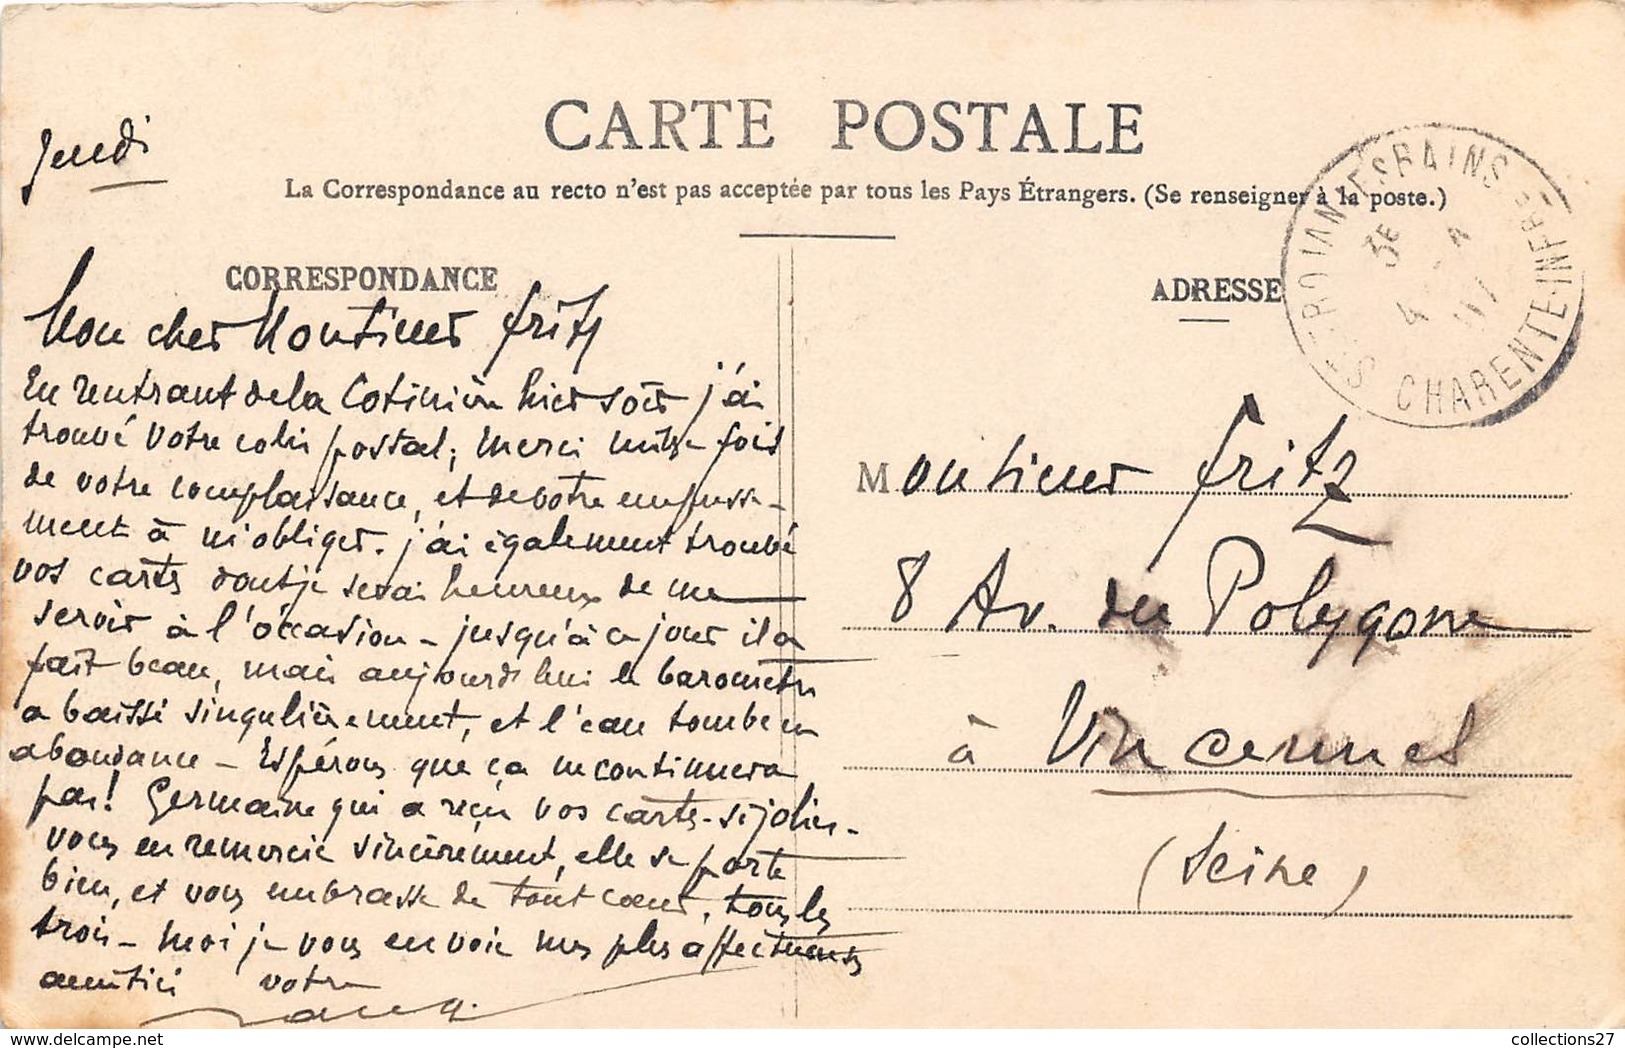 CARTE POSTALE
La Correspondance au recto n'est pas acceptée par tous les Pays Étrangers. (Se renseigner à la poste.)
Jeudi
CORRESPONDANCE
Mon cher Monsieur Fritz
En rentrant de la Cotinière hier soir j'ai
trouvé votre colis postal; merci mille fois
de votre complaisance, et de votre empresse-
ment à m'obliger. j'ai également trouvé
vos cartes dont je serai heureux de me
servir à l'occasion - jusqu'à ce jour il a
fait beau, mais aujourd'hui le baromètre
a baissé singulièrement, et l'eau tombe en
abondance - Espérons que ça ne continuera
pas! Germaine qui a reçu vos cartes si jolies -
vous en remercie sincèrement, elle se porte
bien, et vous embrasse de tout cœur, tous les
trois - Moi je vous envoie mes plus affectueuses
amitiés votre
ADRESSE
Monsieur Fritz
8 Av. du Polygone
à Vincennes
(Seine)
CHARENTE-INFRE
collections27